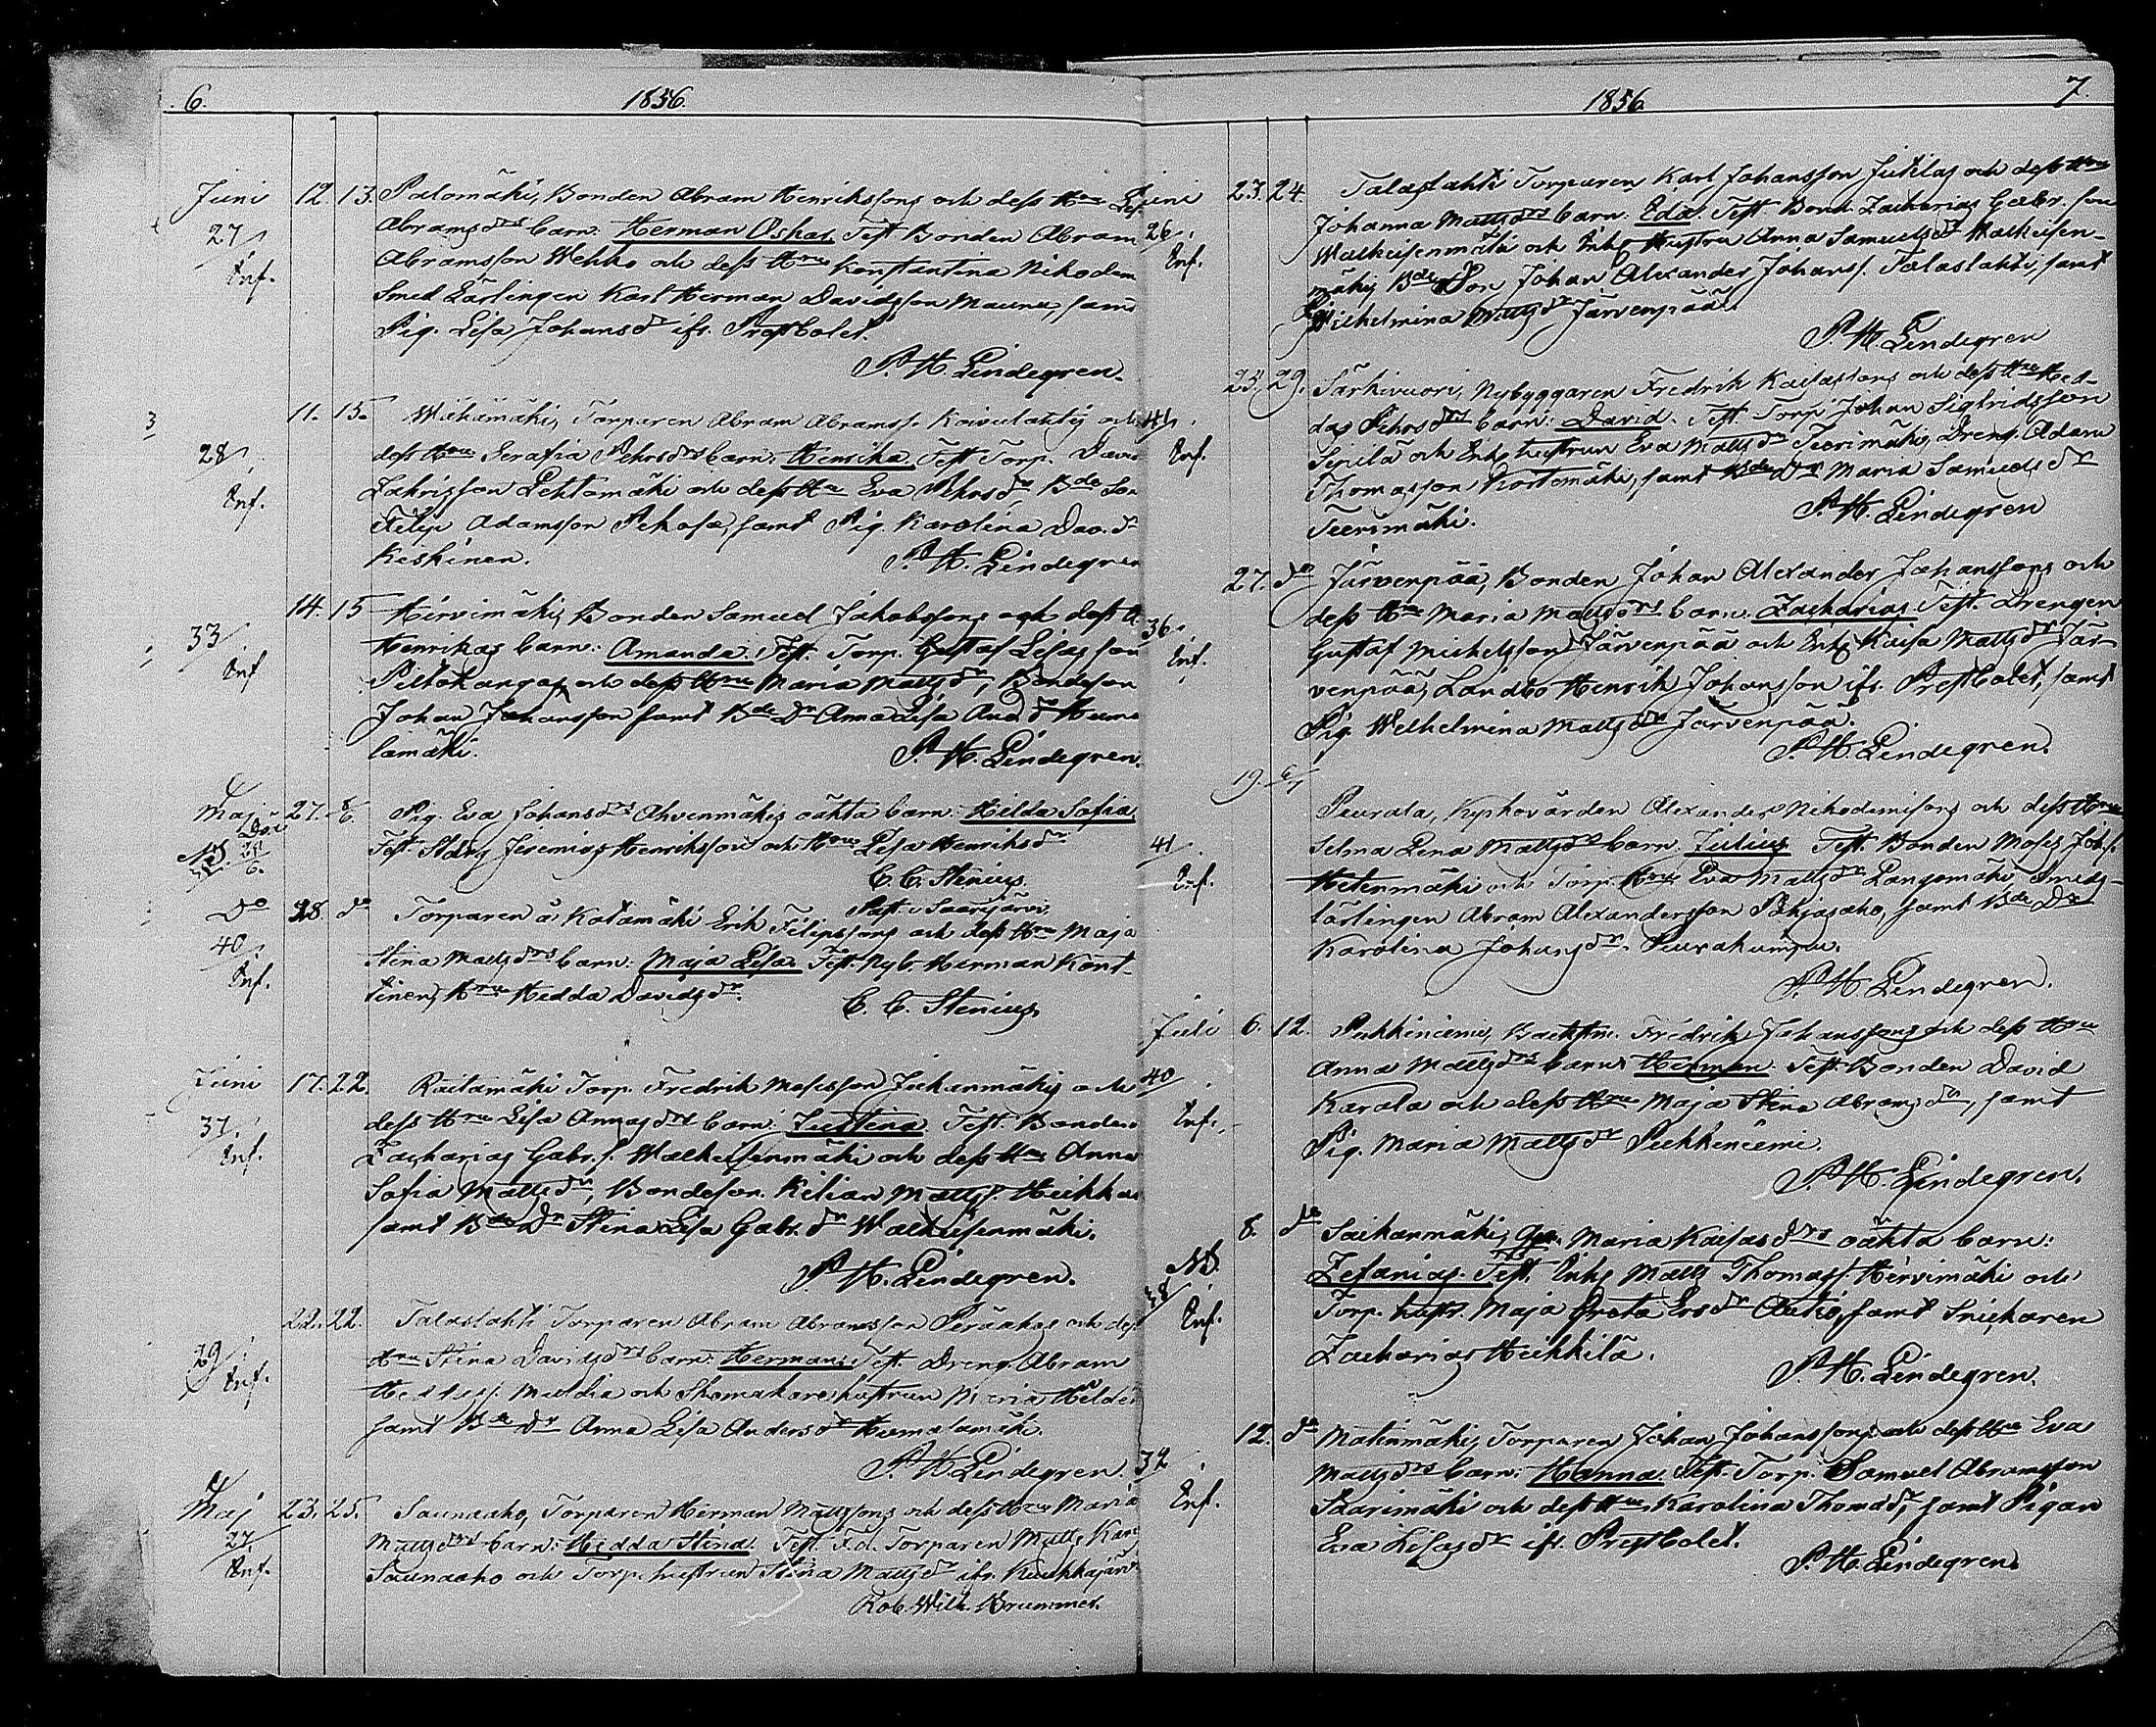 6. 1856.
Juni 12. 13. Palomäki, Bonden Abram Henrikssons och dess Hru
27 Abramsdrs barn: Herman Oskar. Test. Bonden Abram
Enf. Abramsson Wehko och dess Hru Konstantina Nikodem
Smed Lärlingen Karl Herman Davidsson Maunu, samt
Pig. Lisa Johansdr ifr. Prestbolet.
P. H. Lindegren.
11. 15. Torparen Abram Abramss. Koivulahtis och
28 dess Hru Serafia Pehrsdrs barn: Henrika. Test. Torp. David
Enf. Zakrisson Lehtomäki och dess Hru Eva Pehrsdr, Bde Son
Filip Adamsson samt Pig. Karolina Dav. dr
Keskinen. P. H. Lindegren
14. 15 Hirvimäki, Bonden Samuel Jakobssons och dess H.
33 Henrikas barn: Amanda. Test. Torp. Gustaf Lisasson
Enf Piltokangas och dess Hru Maria Mattsdr, Bondeson
Johan Johansson samt Bde Dr Anna Lisa And. dr Huma
lamäki. P. H. Lindegren.
Maj 27. 8/6. Pig. Eva Johansdrs Ahvenmäkis oäkta barn: Hilda Sofia
Test. Jeremias Henriksson och Hru Lisa Henriksdr
C. C. Stenius
Past. i Saarijärvi.
Do 28. do Torparen å Kotamäki Erik Filipssons och dess Hru Maja
40 Stina Mattsdrs barn: Maja Lisa. Test. Nyb. Herman Kont-
Enf. tinen, Hru Hedda Davidsdr.
C. C. Stenius.
Juni 17. 22. Raitamäki Torp. Fredrik Mosesson Juhanmäkis och
37 dess Hru Lisa Annasdrs barn: Justina. Test. Bonden
Enf. Zacharias Gabr. s. Walkeisenmäki och dess Hru Anna
Sofia Mattsdr, Bondeson Kilian Matts. Heikka
samt Bde Dr Stina Lisa Gabr. dr Walkeisenmäki.
P. H. Lindegren.
22. 22. Talaslahti Torparen Abram Abramsson Peräahos och dess
29 Hru Stina Davidsdrs barn: Herman. Test. Dreng. Abram
Enf. Multia och Skomakare hustrun Maria
samt Bde Dr Anna Lisa Andersdr Humalamäki.
P. H. Lindegren.
Maj 23. 25. Saunaaho, Torparen Herman Mattssons och dess Hru Maria
27 Mattsdrs barn: Hedda Stina. Test. F.d. Torparen Matts
Enf. Saunaaho och Torp. hustrun Stina Mattsdr ifr.
Rob. Wilh. Brummer.
1856 7.
Juni 23. 24. Talaslahti Torparen Karl Johansson Jutilas och dess Hru
26 Johanna Mattsdrs barn: Eda. Test. Bond. Zacharias Gabr. son
Enf. Walkeisenmäki och Enk. Hustru Anna Samuelsdr Walkeisen-
mäki, Bde Son Johan Alexander Johanss. Talaslahti, samt
Wilhelmina Mattsdr Järvenpää.
P. H. Lindegren
25. 29. Särkivuori, Nybyggaren Fredrik Kaisassons och dess Hru Hed-
41 das Pehrsdrs barn: David. Test. Torp. Johan Sigfridsson
Enf. Sepilä och Enk. hustrun Eva Mattsdr Teerimäki, Dreng. Adam
Thomasson Kortemäki, samt Bde Dr Maria Samuelsdr
Teerimäki. P. H. Lindegren
27. do Järvenpää, Bonden Johan Alexander Johanssons och
36 dess Hru Maria Mattsdrs barn: Zacharias. Test. Drengen
Enf. Gustaf Michelsson Järvenpää och Enk. Kaisa Mattsdr Jär-
venpää, Landbo Henrik Johansson ifr. Prestbolet, samt
Pig. Wilhelmina Mattsdr Järvenpää.
P. H. Lindegren.
19. 6/7
Peurala, Kyrkovärden Alexander Nikodemissons och dess Hru
41 Selma Lena Mattsdrs barn: Julius. Test. Bonden Moses Joh. s.
Enf. Hetenmäki och Torp. Hru Eva Mattsdr Smeds-
lärlingen Abram Alexandersson Pohjasaho, samt Bde Dr
Karolina Johansdr Peurakumpu.
P. H. Lindegren.
Juli 6. 12. Pukkiniemi, Backstm. Fredrik Johanssons och dess Hru
40 Anna Mattsdrs barn Herman. Test. Bonden David
Enf. Karala och dess Hru Maja Stina Abramsdr, samt
Pig. Maria Mattsdr Pukkiniemi.
P. H. Lindegren.
8. do Saikanmäki, Maria Kaisasdrs oäkta barn:
Zefanias. Test. Enk. Matts Thomass. Hirvimäki och
Enf. Torp. hustr. Maja Greta Ersdr Autio, samt Snickaren
Zacharias Heikkilä.
P. H. Lindegren.
12. do Matinmäki, Torparen Johan Johanssons och dess Hru Eva
32 Mattsdrs barn: Hanna. Test. Torp. Samuel Abramsson
Enf. Saarimäki och dess Hru Karolina Thomasdr, samt Pigan
Eva Lisasdr ifr. Prestbolet.
P. H. Lindegren.